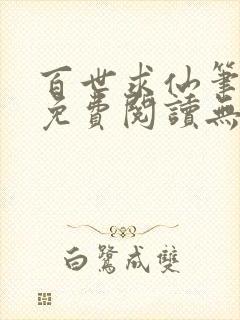 百世求仙筆
免費閱讀無
白鷺成雙